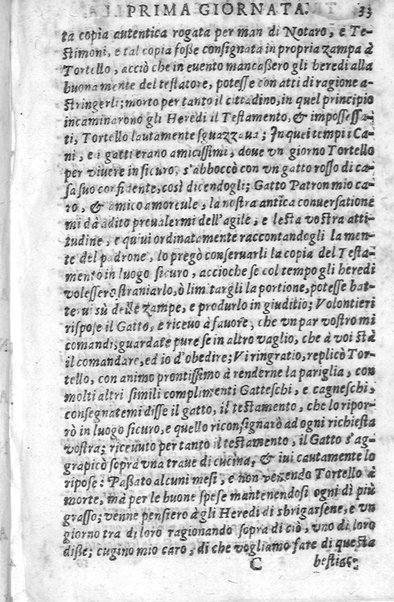 PRIMA GIORNATA. 33
ta copia autentica rogata per man di Notaro, e Te-
stimoni, e tal copia foße consignata in propria zampa à
Tortello, acciò che in evento mancaßero gli heredi alla
buona mente del testatore, potesse con atti di ragione a-
stringerli; morto per tanto il cittadino, in quel principio
incaminarono gli Heredi il Testamento, & impossessa-
ti, Tortello lautamente sguazzaua; In quei tempi i Ca-
ni, e i gatti erano amicissimi, dove un giorno Tortello
per vivere in sicuro, s'abboccò con un gatto rosso di ca-
sa suo confidente, così dicendogli; Gatto Patron mio ca-
ro, & amico amorevole, la nostra antica conversatione
mi dà adito prevalermi dell'agile, e lesta vostra atti-
tudine, e qu'ui ordinatamente raccontandogli la men-
te del padrone, lo pregò conservarli la copia del Testa-
mento in luogo sicuro, accioche se col tempo gli heredi
volessero straniarlo, ò limitargli la portione, potesse bat-
terui sù delle zampe, e produrlo in giuditio; Volontieri
rispose il Gatto, e ricevo à favore, che un par vostro mi
comandi; guardate pure se in altro vaglio, che à voi stà
il comandare, ed io d'obedire; Vi ringratio, replicò Tor-
tello, con animo prontissimo à renderne la pariglia, con
molti altri simili complimenti Gatteschi, e cagneschi,
consegnatemi disse il gatto, il testamento, che lo ripor-
rò in luogo sicuro, e quello riconsignarò ad ogni richiesta
vostra; riceuuto per tanto il testamento, il Gatto s'ag-
grapicò sopra una traue di cucina, & iui cautamente lo
ripose: Paßato alcuni mesi, e non venendo Tortello à
morte, mà per le buone spese mantenendosi ogni dì più
grasso; venne pensiero à gli Heredi di sbrigarsene, e un
giorno tra di loro ragionando sopra di ciò, uno di loro
diße; cugino mio caro, di che vogliamo fare di questa
C bestiac-